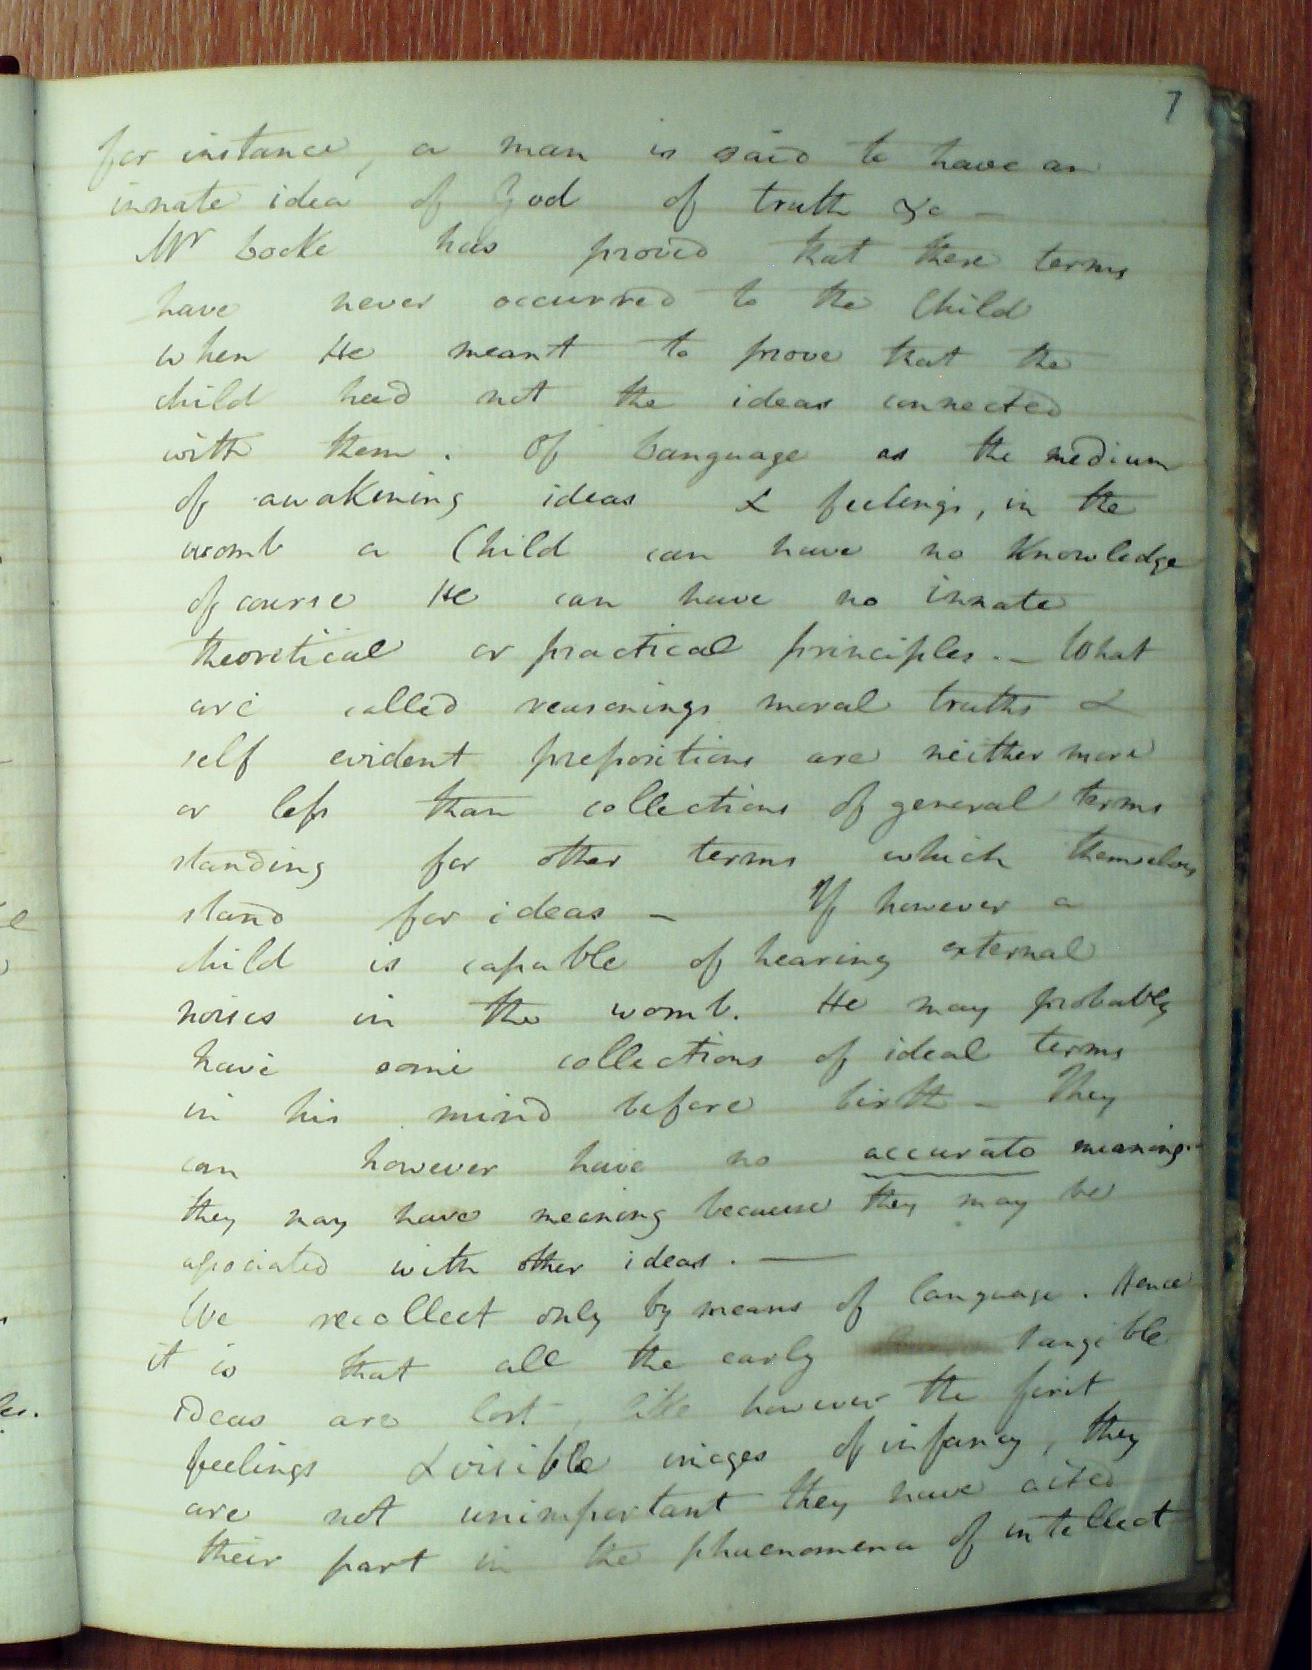 7
for instance, a man is said to have an
innate idea of God of truth &c –
Mr Locke has proved that these terms
have never occurred to the Child
when He meant to prove that the
child had not the ideas connected
with them. Of Language as the medium
of awakening ideas & feelings, in the
womb a Child can have no Knowledge
of course He can have no innate
theoretical or practical principles. – What
are called reasonings moral truths &
self evident prepositions are neither more
or less than collections of general terms
standing for other terms which themselves
stand for ideas – If however a
child is capable of hearing external
noises in the womb. He may probably
have some collections of ideal terms
in his mind before birth – They
can however have no accurate meaning. –
they may have meaning because they may be
associated with other ideas. —
We recollect only by means of language. Hence
it is that all the early tangible
ideas are lost, like however the first
feelings & visible images of infancy, they
are not unimportant they have acted
their part in the phaenomena of intellect